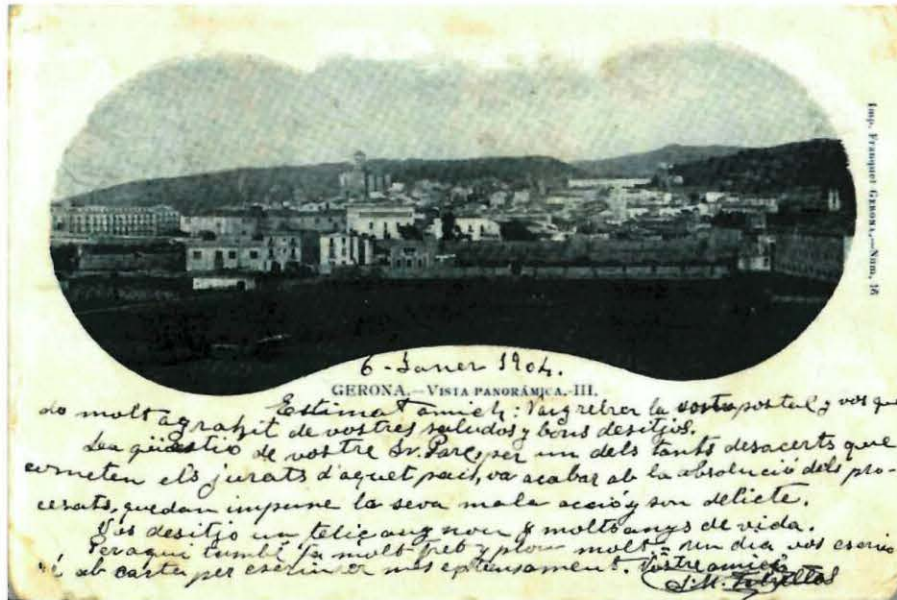 6 - Janer 1904.
GERONA.—VISTA PANORÁMICA.-III.
Estimat amich: Vaig rebrer la postal y vos que
do molt agrahit de vostres saludos y bons desitjos.
La qüestio de vostre Sr. Pare, per un dels tants desacerts que
cometen els jurats d'aquet pais, va acabar ab la absolució dels pro-
cesats, quedan impune la seva mala acció y son delicte.
Vos desitjo un feliç any nou y molts anys de vida.
Per aqui també fa molt fret y plou molt un dia vos escriu
ré ab carta per escriurer mes extensament. Vostre amich
J. M.
Imp. Franquet GERONA.—Núm. 16